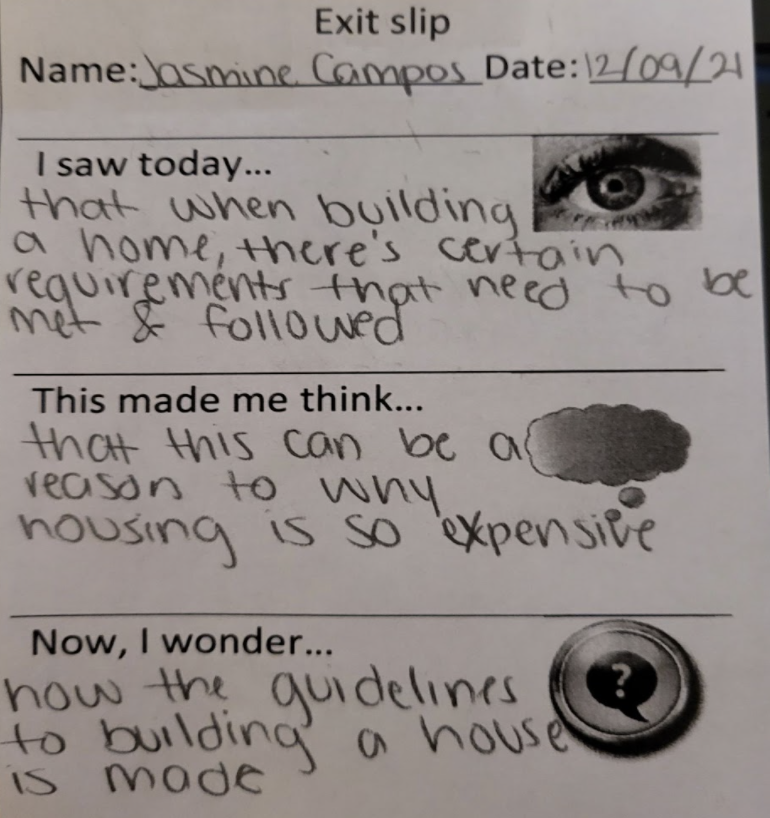 Exit slip
Name: Jasmine Campos Date: 12/09/21
I saw today...
that when building
a home, there's certain
requirements that need to be
met & followed
This made me think...
that this can be a
reason to why
housing is so expensive
Now, I wonder...
how the guidelines
to building a house
is made
?